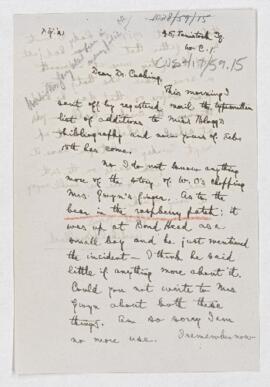 CUS417/59.15
35, Tavistock Sq.
W.C.1.
Dear Dr. Cushing,
This morning I
sent off by registered mail the typewritten
list of additions to Miss Blogg's
bibliography and now yours of Feb.
10th has come.
No I do not know anything
more of the story of W.O's chopping
Mrs. Gwyn's finger. As to the
bear in the raspberry patch: it
was up at Bond Head as a
small boy and he just mentioned
the incident — I think he said
little if anything more about it.
Could you not write to Mrs
Gwyn about both these
things. Am so sorry I am
no more use. I remember now